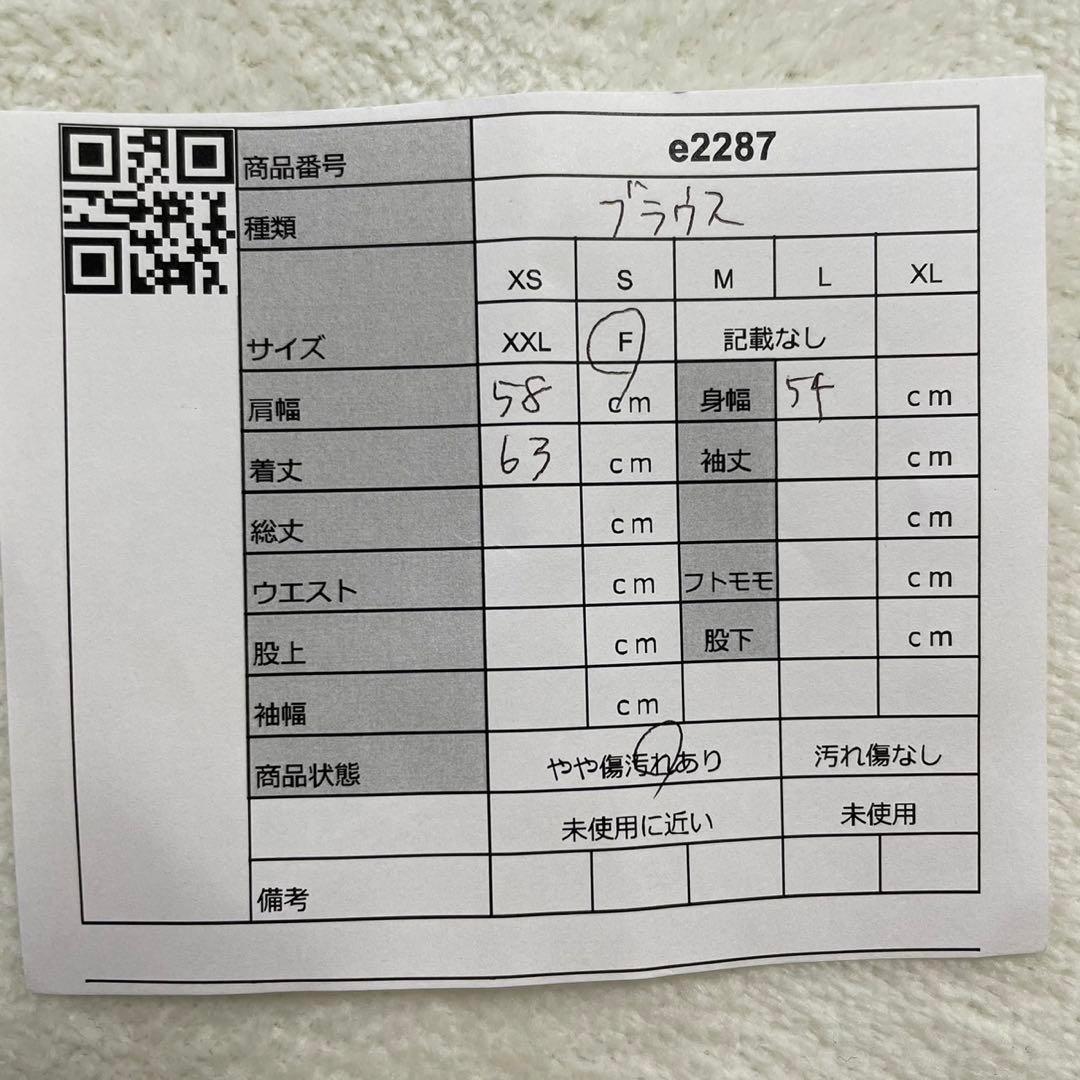 商品番号 e2287
種類 ブラウス
XS S M L XL
サイズ XXL F 記載なし
肩幅 58 cm 身幅 54 cm
着丈 63 cm 袖丈 cm
総丈 cm cm
ウエスト cm フトモモ cm
股上 cm 股下 cm
袖幅 cm
商品状態 やや傷汚れあり 汚れ傷なし
未使用に近い 未使用
備考